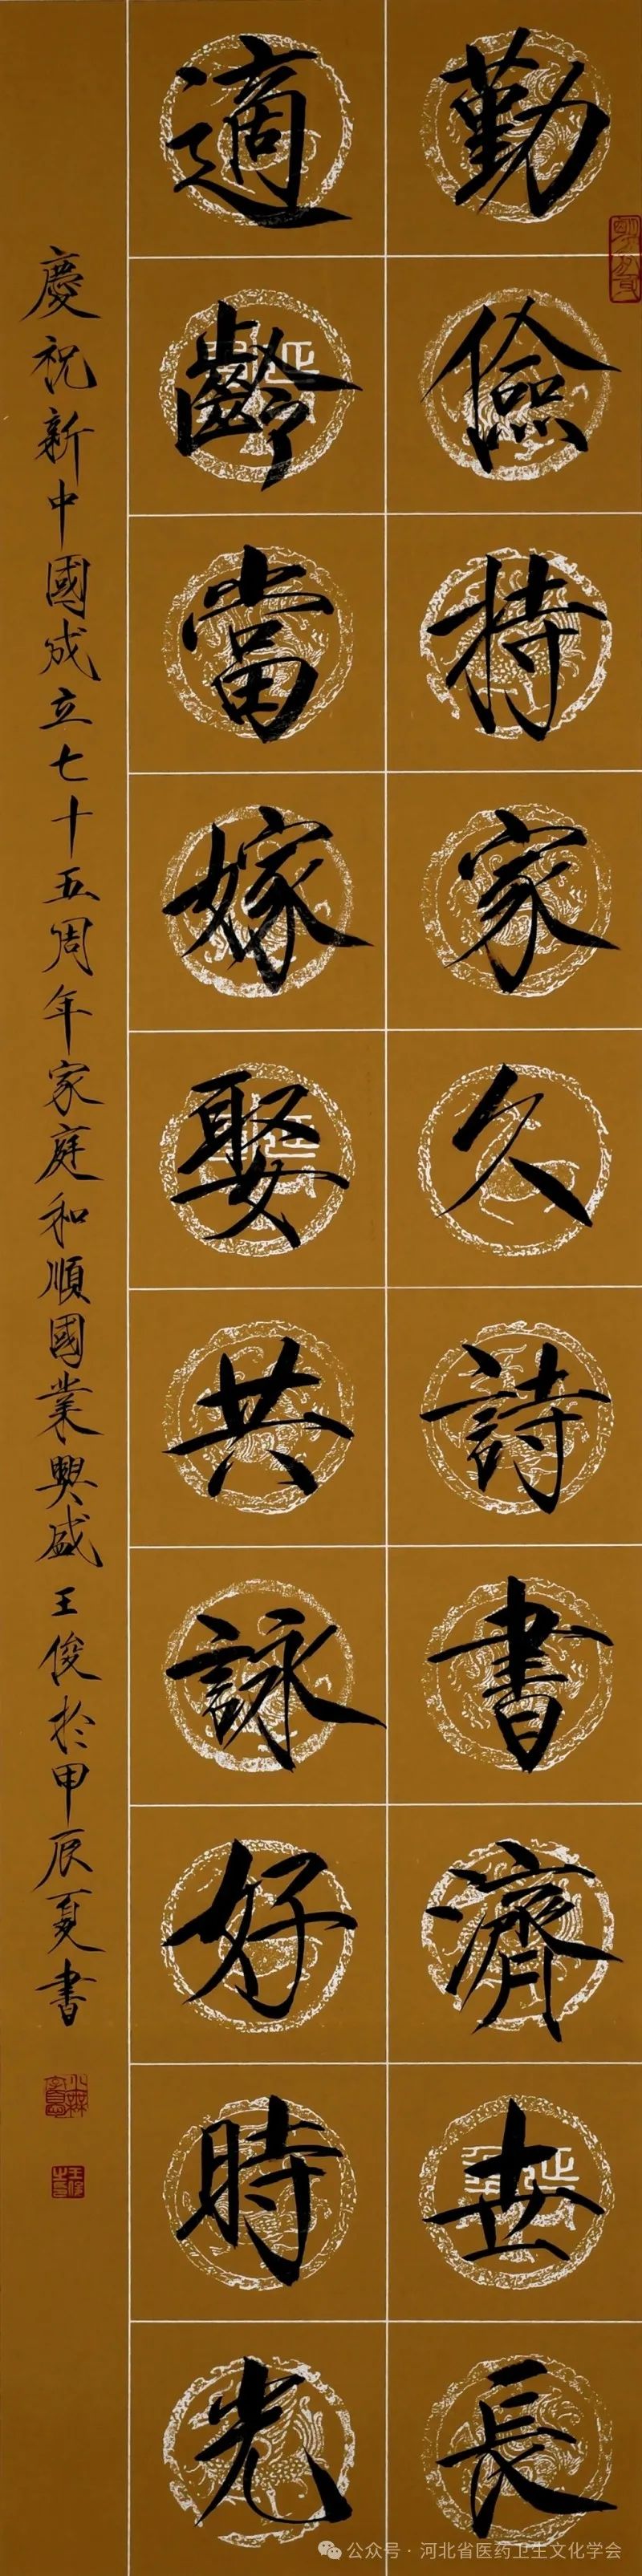 勤儉持家久詩書濟世長
適齡當嫁娶共詠好時光
慶祝新中國成立七十五周年家庭和順國業興盛王俊於甲辰夏書
公众号·河北省医药卫生文化学会